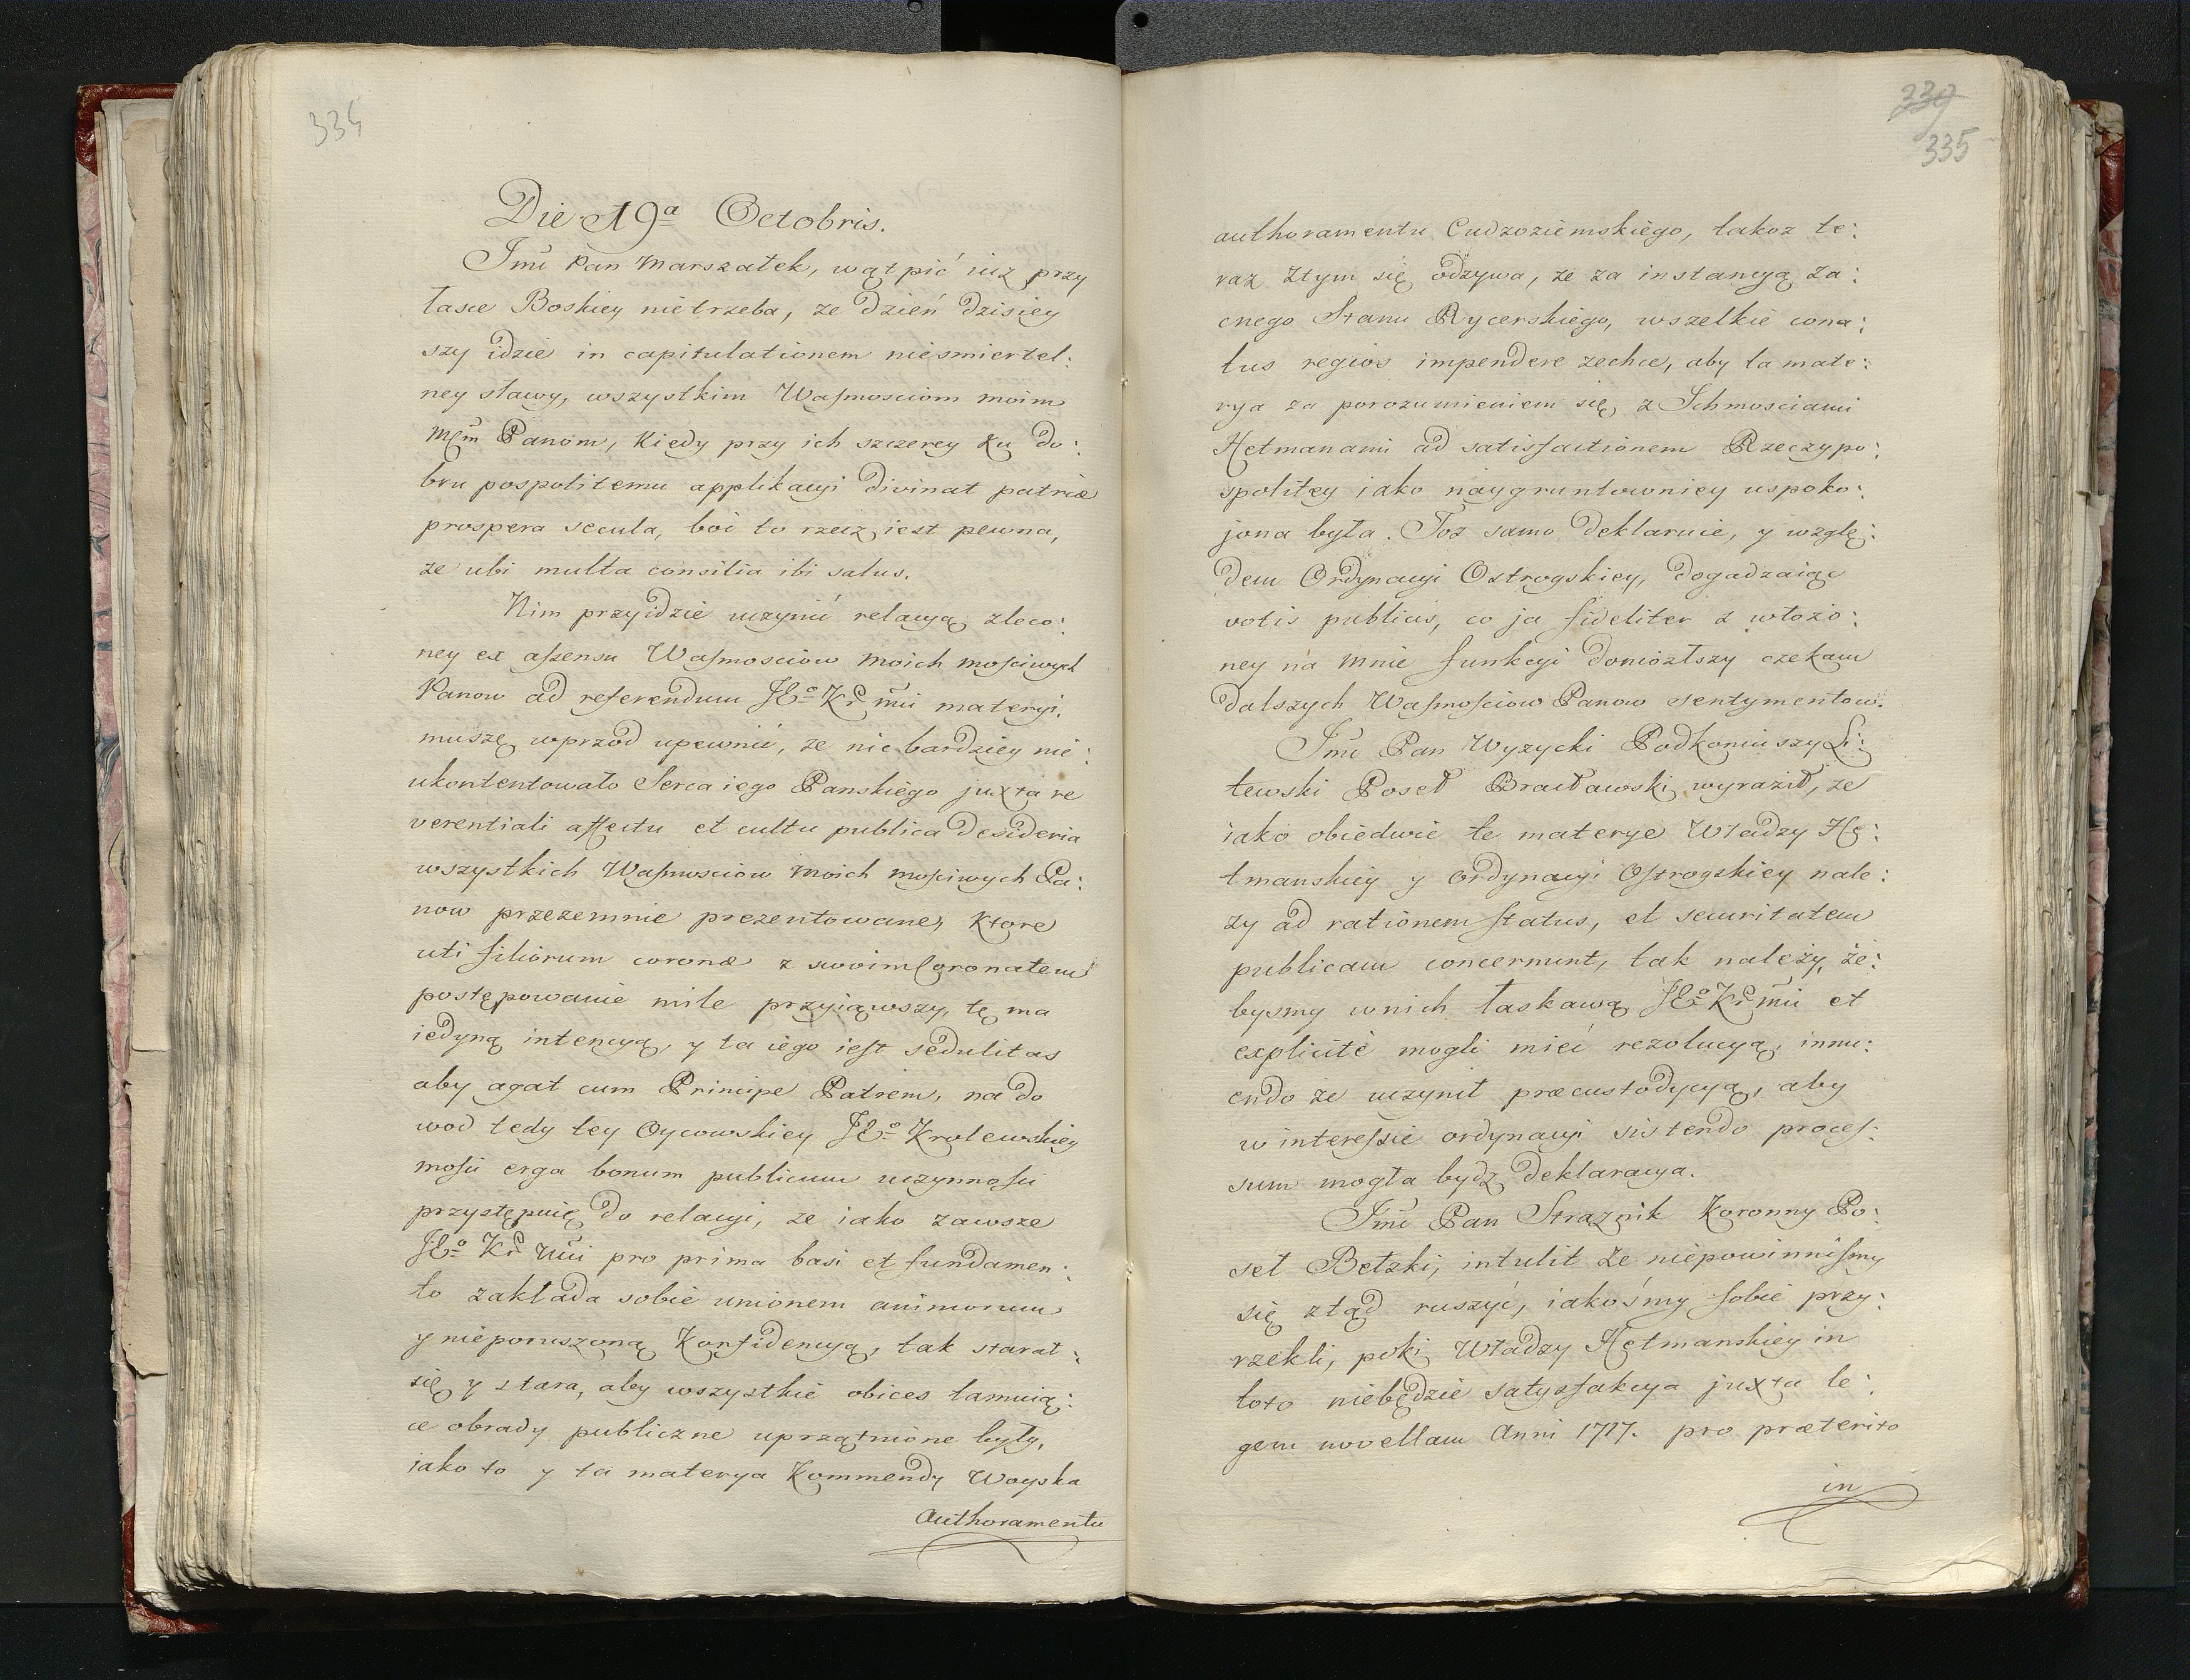 334
Die 19ª Octobris.
Jmć Pan Marszałek, wątpić iuz przy
łasce Boskiey nietrzeba, ze dzień dzisiey
szy idzie in capitulationem niesmiertel:
ney sławy, wszystkim Waſmosciom moim
Mςm̃ Panom, kiedy przy ich szczerey ku do:
bru pospolitemu applikacyi divinat patriæ
prospera secula, boć to rzecz iest pewna,
ze ubi multa consilia ibi salus.
Nim przyidzie uczynić relacyą zleco:
ney ex aſsensu Waſmosciow moich moſciwych
Panow ad referendum JEº Kr m̃ci materyi,
muszę wprzod upewnić, ze nic bardziey nie:
ukontentowało Serca iego Panskiego juxta re
verentiali affectu et cultu publica desideria
wszystkich Waſmosciow moich moſciwych Pa:
now przezemnie prezentowane, ktore
uti filiorum coronæ z swoim Coronatem
postępowanie mile przyiąwszy, tę ma
iedyną intencyą, y ta iego ieſt sedulitas
aby agat cum Principe Patrem, na do
wod tedy tey Oycowskiey JEº Krolewskiey
moſci erga bonum publicum uczynnoſci
przystępuię do relacyi, ze iako zawsze
JEº Kr m̃ci pro prima basi et fundamen:
to zakłada sobie unionem animorum
y nieporuszoną Konfidencyą, tak starał
się y stara, aby wszystkie obices tamuią:
ce obrady publiczne uprzątnione były,
iako to y ta materya Kommendy Woyska
Authoramentu
339
335
authoramentu Cudzoziemskiego, takoz te:
raz ztym się odzywa, ze za instancyą za:
cnego Stanu Rycerskiego, wszelkie cona:
tus regios impendere zechce, aby ta mate:
rya za porozumieniem się z Ichmosciami
Hetmanami ad satisfactionem Rzeczypo:
spolitey iako náygruntowniey uspoko:
jona była. Toz samo deklaruie, y wzglę:
dem Ordynacyi Ostrogskiey, dogadzaiąc
votis publicis, co ja fideliter z włożo:
ney na mnie funkcyi doniozłszy czekam
dalszych Waſmoſciow Panow sentymentow.
Jmć Pan Wyzycki Podkoniuszy Li:
tewski Poseł Bracławski wyraził, ze
iako obiedwie te materye Władzy He:
tmanskiey y Ordynacyi Oſtrogskiey nale:
zy ad rationem ſtatus, et securitatem
publicam concernunt, tak należy, że:
bysmy wnich łaskawą JEº Kr m̃ci et
explicitè mogli mieć rezolucyą, innu:
endo że uczynił præcustodycyą, aby
w intereſsie ordynacyi sistendo proceſ:
sum mogła bydz deklaracya.
Jmć Pan Straznik Koronny Po:
seł Bełzki, intulit że niepowinniſmy
się ztąd ruszyć, iakośmy ſobie przy:
rzekli, poki Władzy Hetmanskiey in
toto niebędzie satysfakcya juxta le:
gem novellam Anni 1717. pro præterito
in